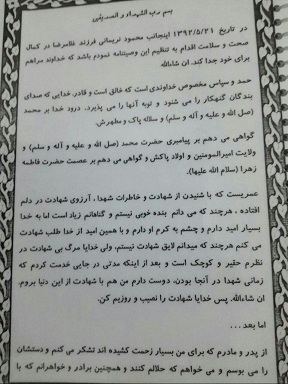 بسم رب الشهداء و الصدیقین
در تاریخ ۱۳۹۲/۵/۲۱ اینجانب محمود نریمانی فرزند غلامرضا در کمال
صحت و سلامت اقدام به تنظیم این وصیتنامه نمودم باشد که خداوند مراهم
برای خود جدا کند. ان شاءالله
حمد و سپاس مخصوص خداوندی است که خالق است و قادر. خدایی که صدای
بندگان گنهکار را می شنود و توبه آنها را می پذیرد. درود خدا بر محمد
(صل الله علیه و آله و سلم) و سلاله پاک و مطهرش.
گواهی می دهم بر پیامبری حضرت محمد (صل الله علیه و آله و سلم) و
ولایت امیرالمومنین و اولاد پاکش و گواهی می دهم بر عصمت حضرت فاطمه
زهرا (سلام الله علیها).
عمریست که با شنیدن از شهادت و خاطرات شهدا، آرزوی شهادت در دلم
افتاده، هرچند که می دانم بنده خوبی نیستم و گناهانم زیاد است اما به خدا
بسیار امید دارم و چشم به کرم او دارم و با همین امید از خدا طلب شهادت
می کنم هرچند که میدانم لایق شهادت نیستم، ولی خدایا مرگ بی شهادت در
نظرم حقیر و کوچک است و بعد از اینکه مدتی در جایی خدمت کردم که
زمانی شهدا در آنجا بودن، دوست دارم من هم با شهادت از این دنیا بروم.
ان شاءالله. پس خدایا شهادت را نصیب و روزیم کن.
اما بعد ...
از پدر و مادرم که برای من بسیار زحمت کشیده اند تشکر می کنم و دستشان
را می بوسم و می خواهم که حلالم کنند و همچنین برادر و خواهرانم که با